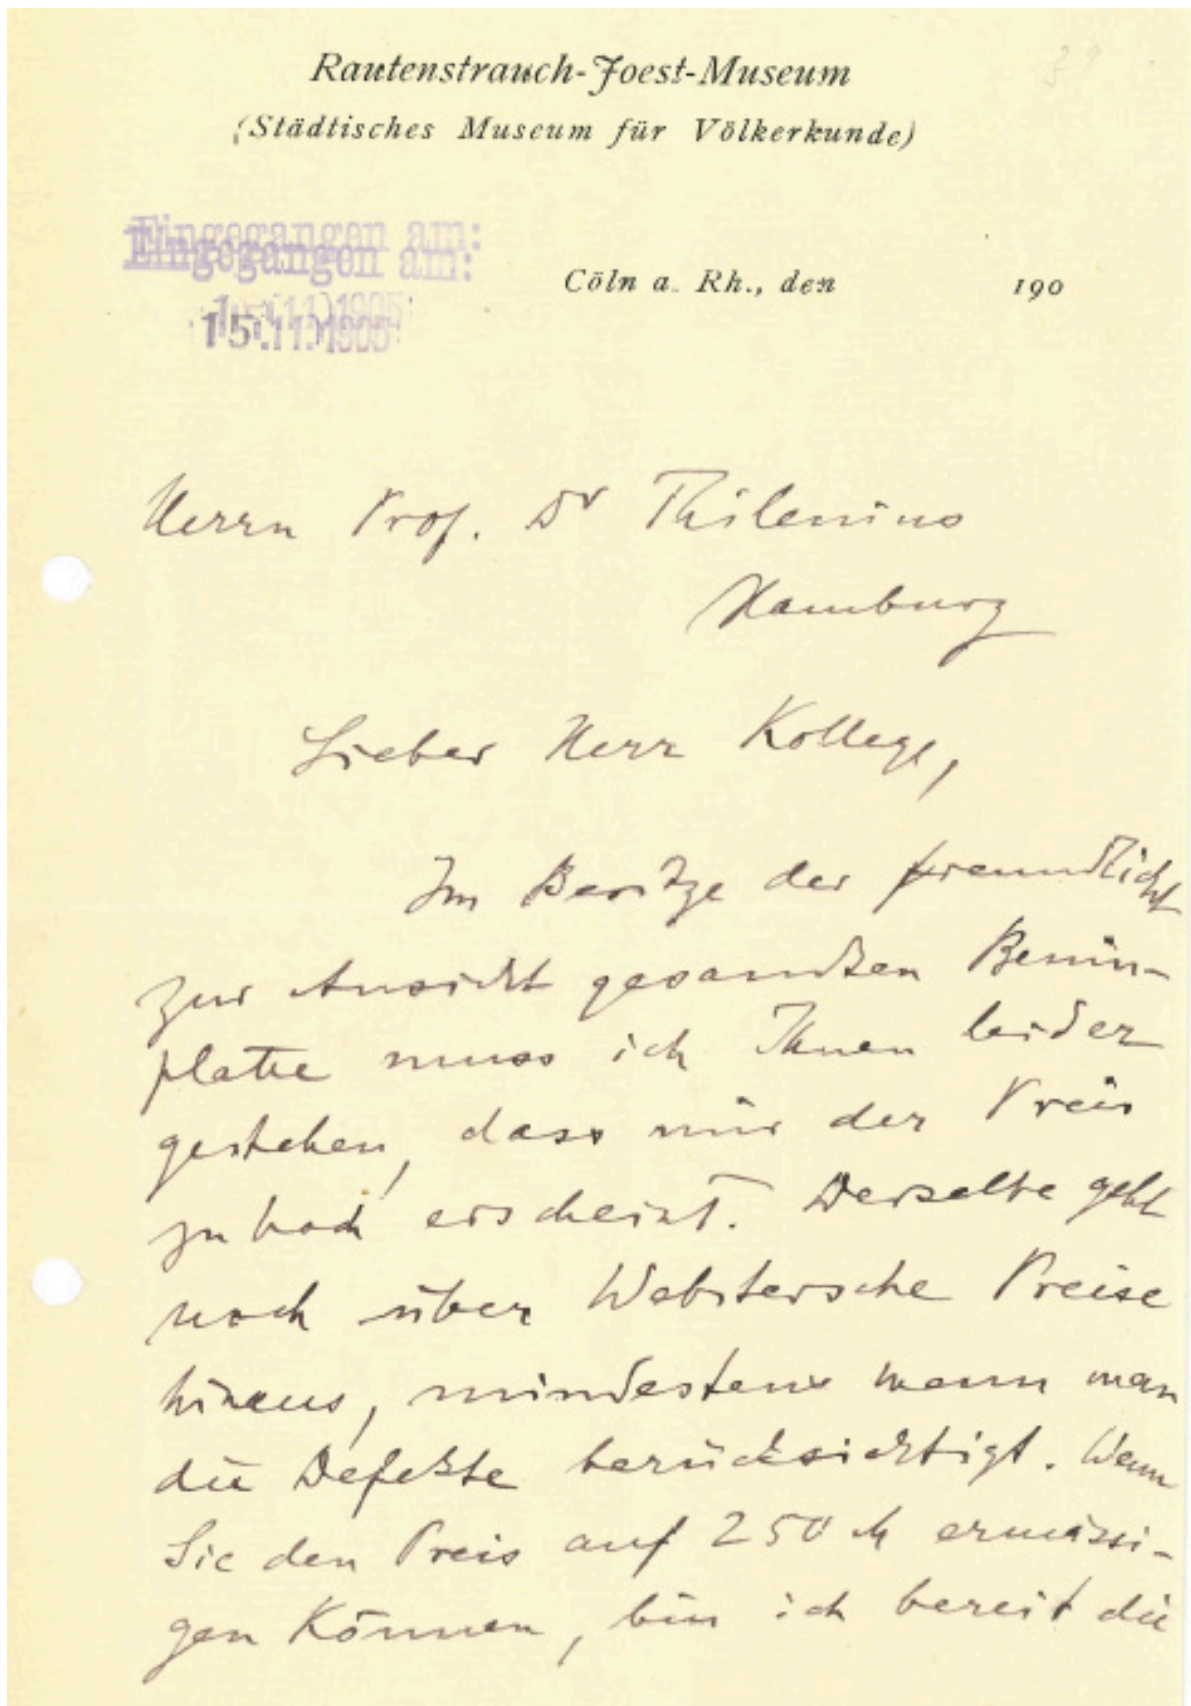 Rautenstrauch-Joest-Museum
(Städtisches Museum für Völkerkunde)
Eingegangen am:
Eingegangen am:
15.11.1905
15.11.1905
Cöln a. Rh., den 190
Herrn Prof. Dr Thilenius
Hamburg
Lieber Herr Kollege,
Im Besitze der freundlichst
zur Ansicht gesandten Benin-
platte muss ich Ihnen leider
gestehen, dass mir der Preis
zu hoch erscheint. Derselbe geht
noch über Webstersche Preise
hinaus, mindestens wenn man
die Defekte berücksichtigt. Wenn
Sie den Preis auf 250 M ermässi-
gen können, bin ich bereit die